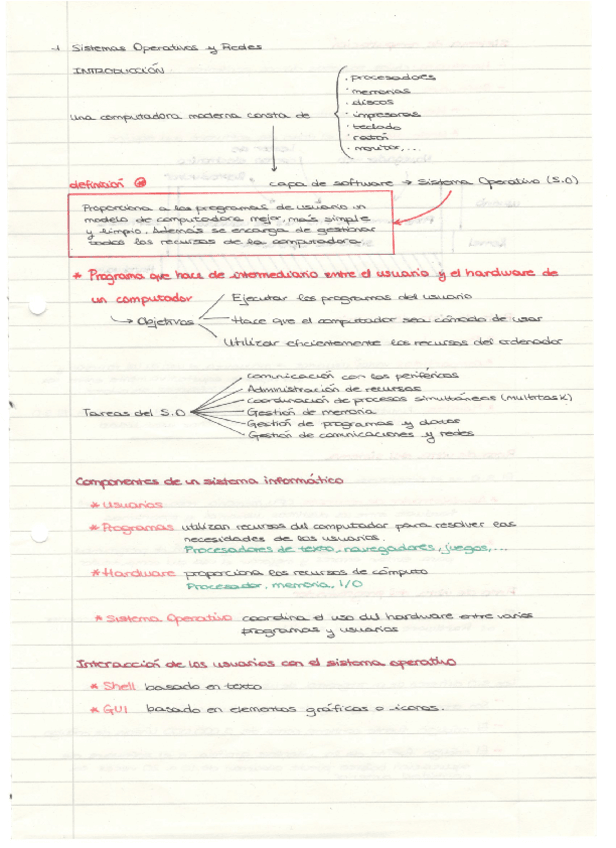 Sistemas Operativos y Redes
INTRODUCCIÓN
Una computadora moderna consta de
· procesadores
· memorias
· discos
· impresoras
· teclado
· ratón
· monitor,...
definición
capa de software → Sistema Operativo (S.O)
Proporciona a los programas de usuario un
modelo de computadora mejor, más simple
y limpio. Además se encarga de gestionar
todos los recursos de la computadora.
* Programa que hace de intermediario entre el usuario y el hardware de
un computador
→ Objetivos
Ejecutar los programas del usuario
Hace que el computador sea cómodo de usar
Utilizar eficientemente los recursos del ordenador
Tareas del S.O
Comunicación con los periféricos
Administración de recursos
Coordinación de procesos simultáneos (multitask)
Gestión de memoria
Gestión de programas y datos
Gestión de comunicaciones y redes
Componentes de un sistema informático
* Usuarios
* Programas utilizan recursos del computador para resolver las
necesidades de los usuarios.
Procesadores de texto, navegadores, juegos,...
* Hardware proporciona los recursos de cómputo
Procesador, memoria, I/O
* Sistema Operativo coordina el uso del hardware entre varios
programas y usuarios
Interacción de los usuarios con el sistema operativo
* Shell basado en texto
* GUI basado en elementos gráficos o iconos.